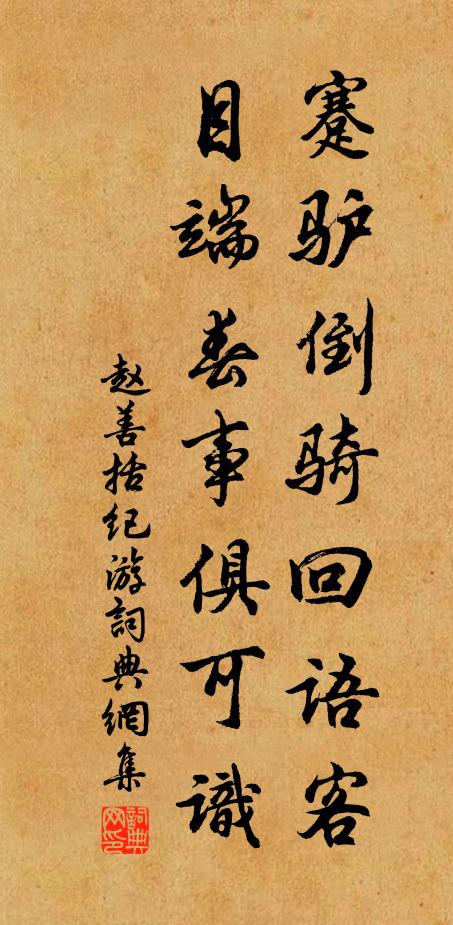 蹇驴倒骑回语客
目端春事俱可識
赵善括纪游詞典網集
詞典网印